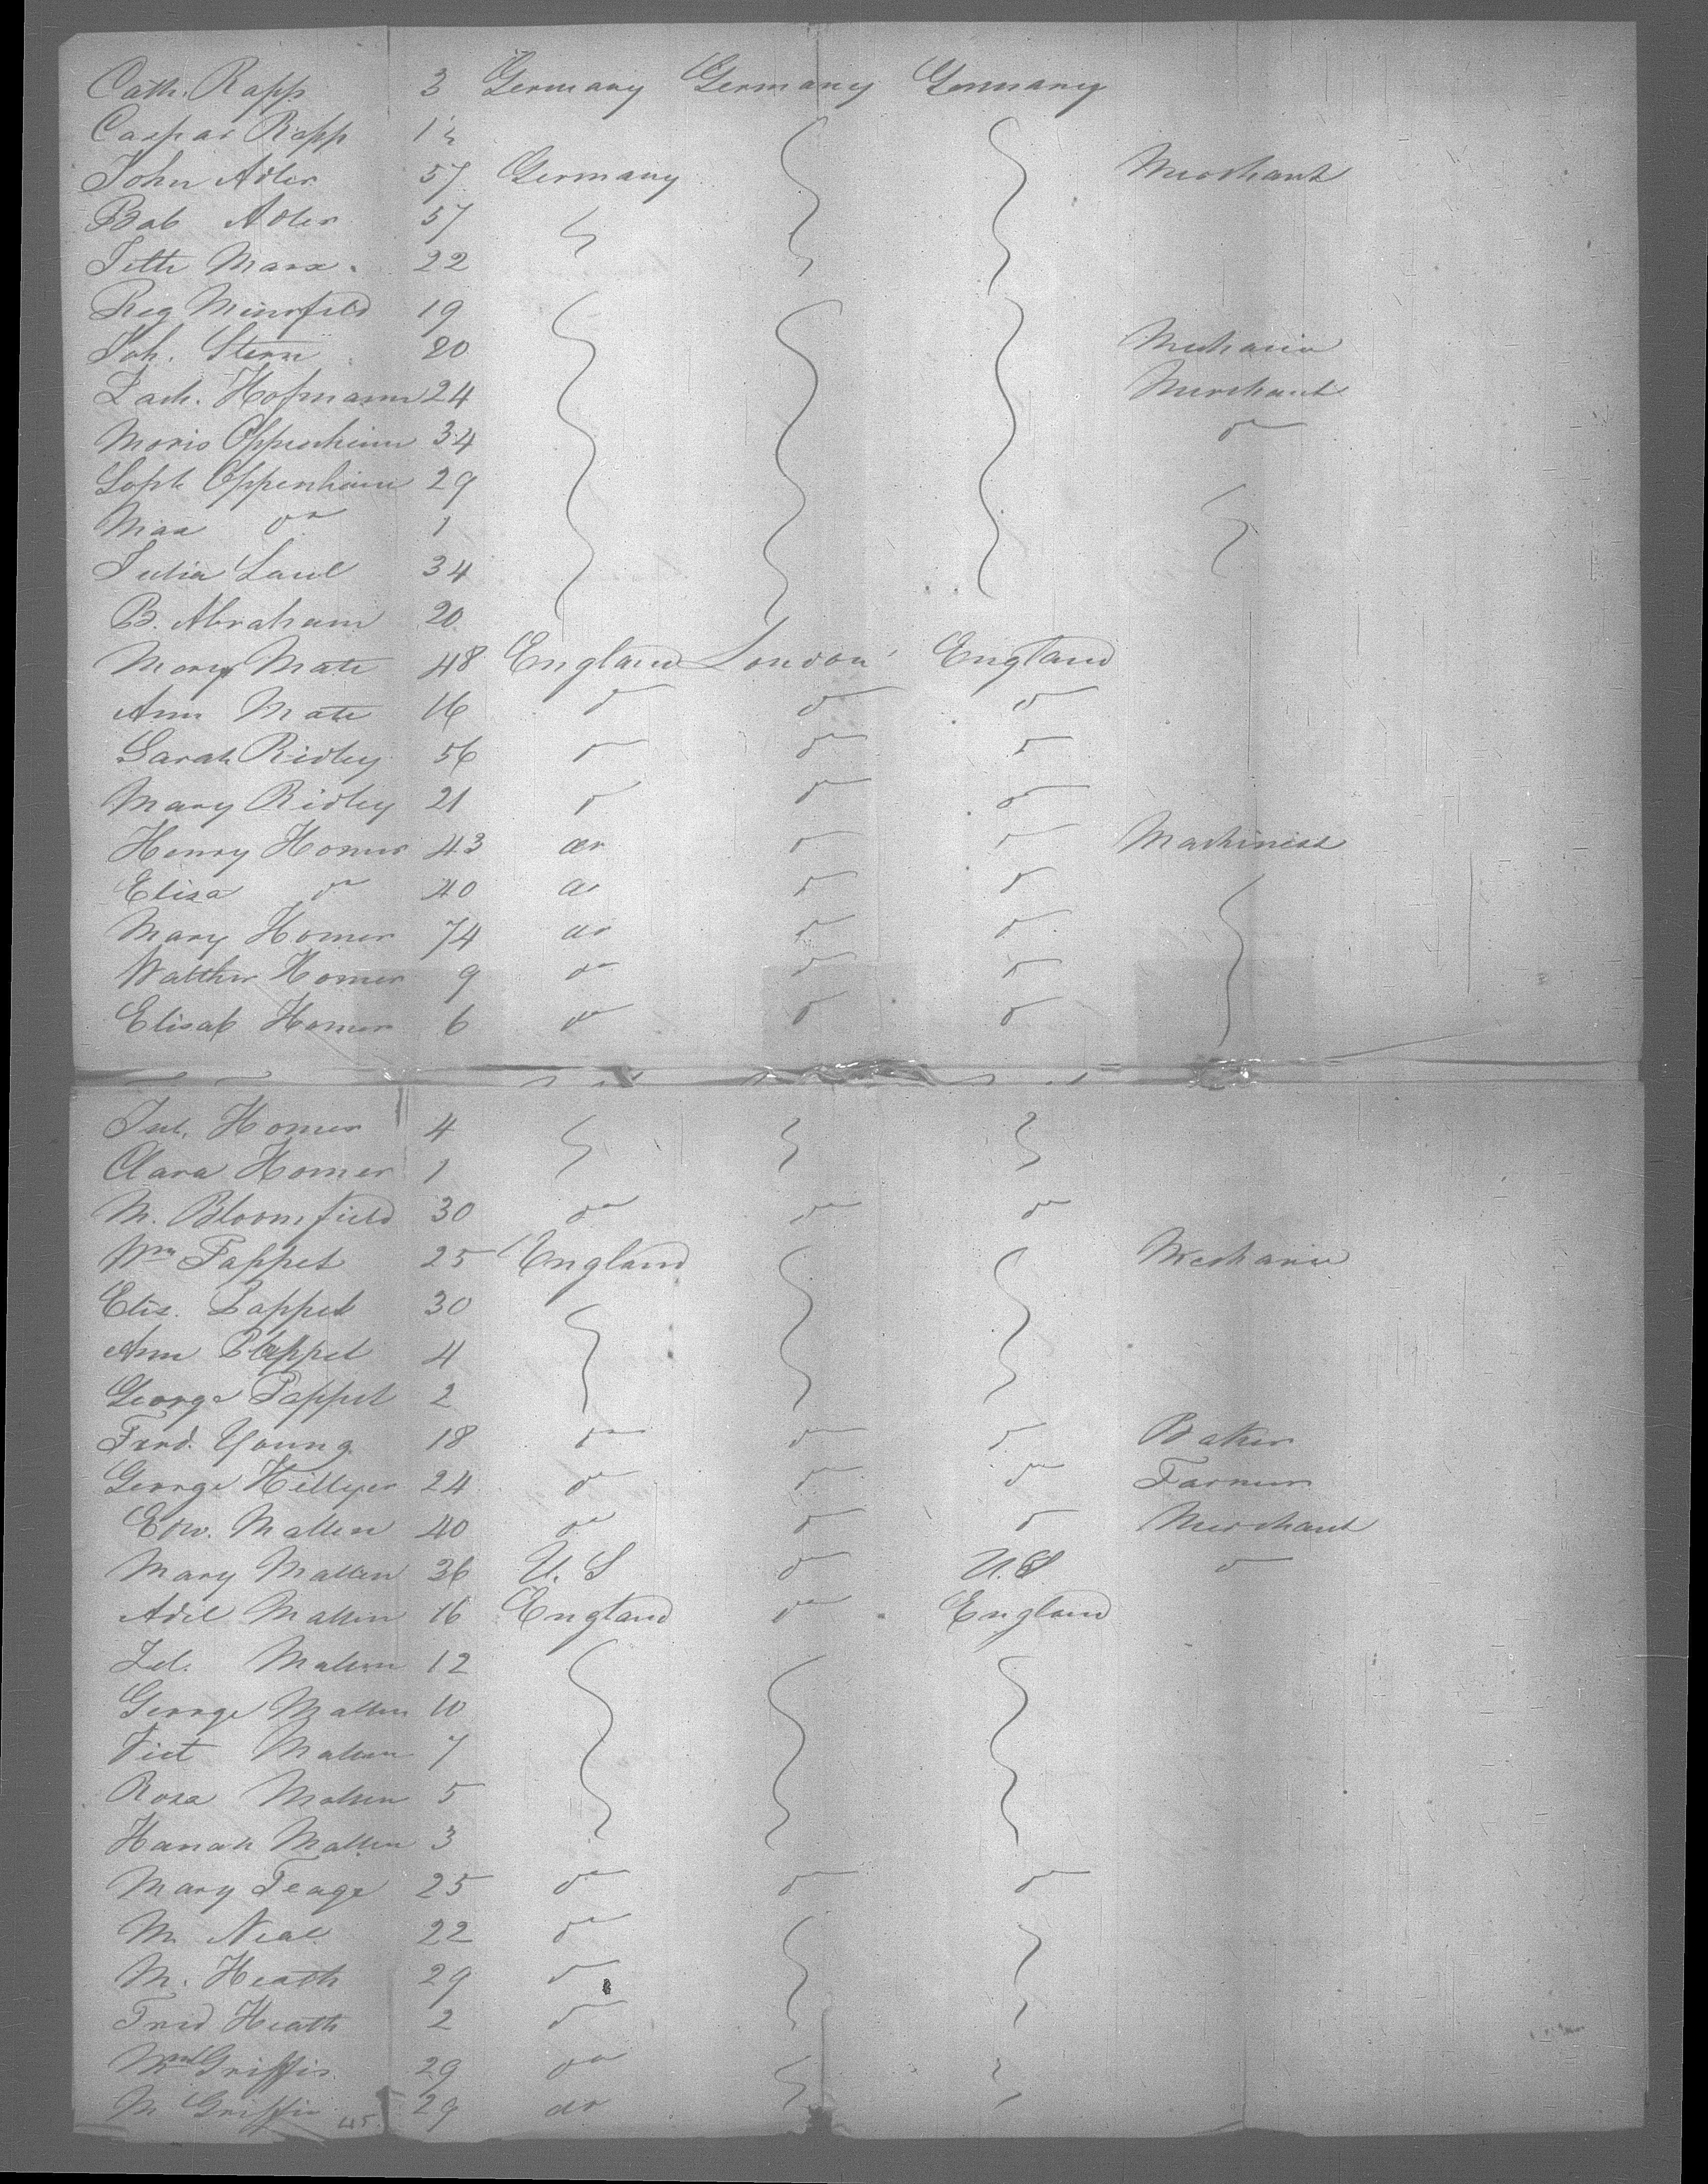 Cath. Rapp 3 Germany Germany Germany
Caspar Rapp 1½
John Adler 57 Germany Merchant
Bab Adler 57
Jette Marx. 22
Reg 19
Joh. Stern 20 Mechanic
Zach. Hofmann 24 Merchant
Moris Oppenheim 34 do
Soph Oppenheim 29
Max do 1
Julia 34
B. Abraham 20
Mary Mate 48 England London England
Ann Mate 16 do do do
Sarah Ridley 56 do do do
Mary Ridley 21 do do do
Henry Homer 43 do do do Machinist
Elisa do 40 do do do
Mary Homer 74 do do do
Walther Homer 9 do do do
Elisab Homer 6 do do do
Homer 4
Clara Homer 1
M. Bloomfield 30 do do do
Wm Pappet 25 England Mechanic
Elis. Pappet 30
Ann Pappet 4
George Pappet 2
Fred. Young 18 do do do Baker
George Hillyer 24 do do do Farmer
Edw. Malten 40 do do do Merchant
Mary Malten 36 U. S do U. S do
Adel Malten 16 England do England
Malten 12
George Malten 10
Vict Malten 7
Rosa Malten 5
Hanah Malten 3
Mary Teage 25 do do do
M. Neal 22 do
M. Heath 29 do
Fred Heath 2 do
Griffin 29 do
M Griffin 29 do
45